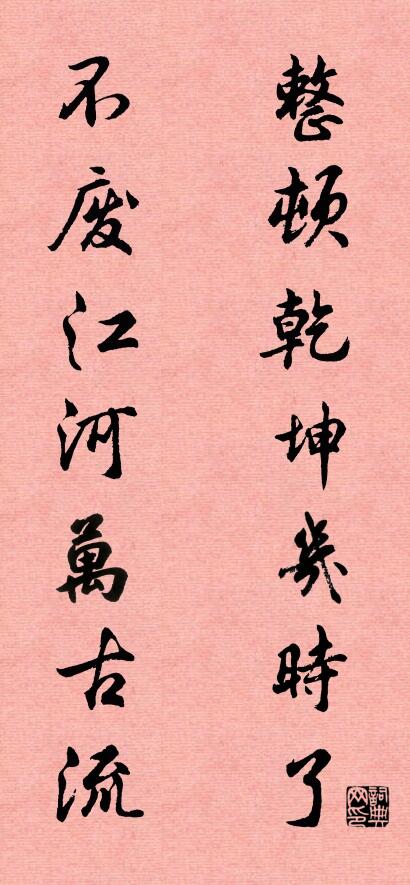 整頓乾坤幾時了
不废江河萬古流
詞典网印